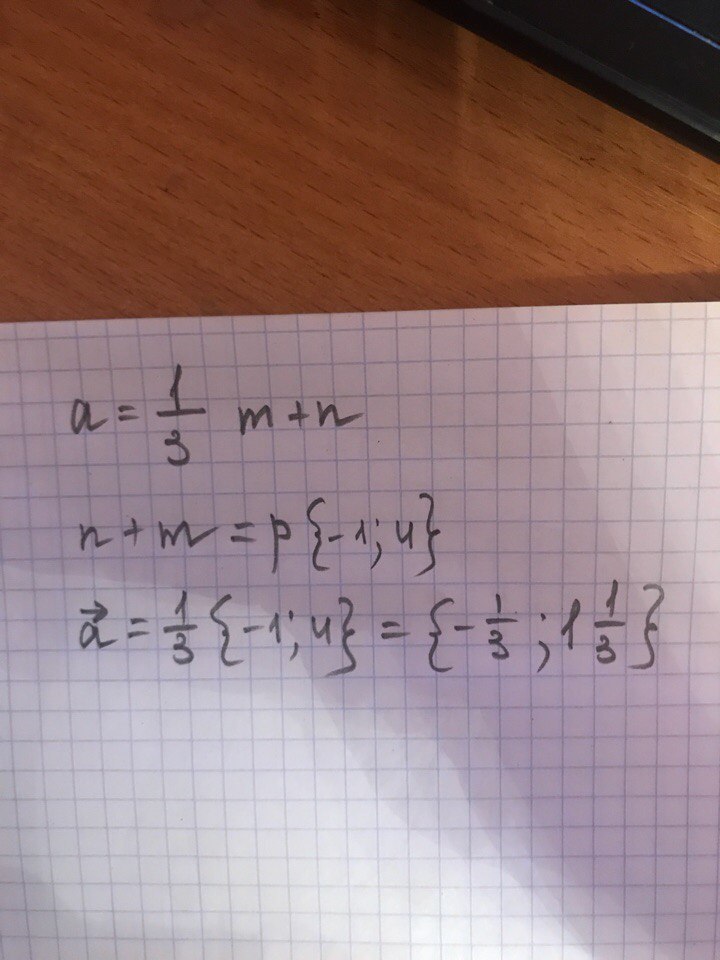 a = 1/3 m + n
n + m = p {-1; 4}
a⃗ = 1/3 {-1; 4} = {-1/3; 1 1/3}